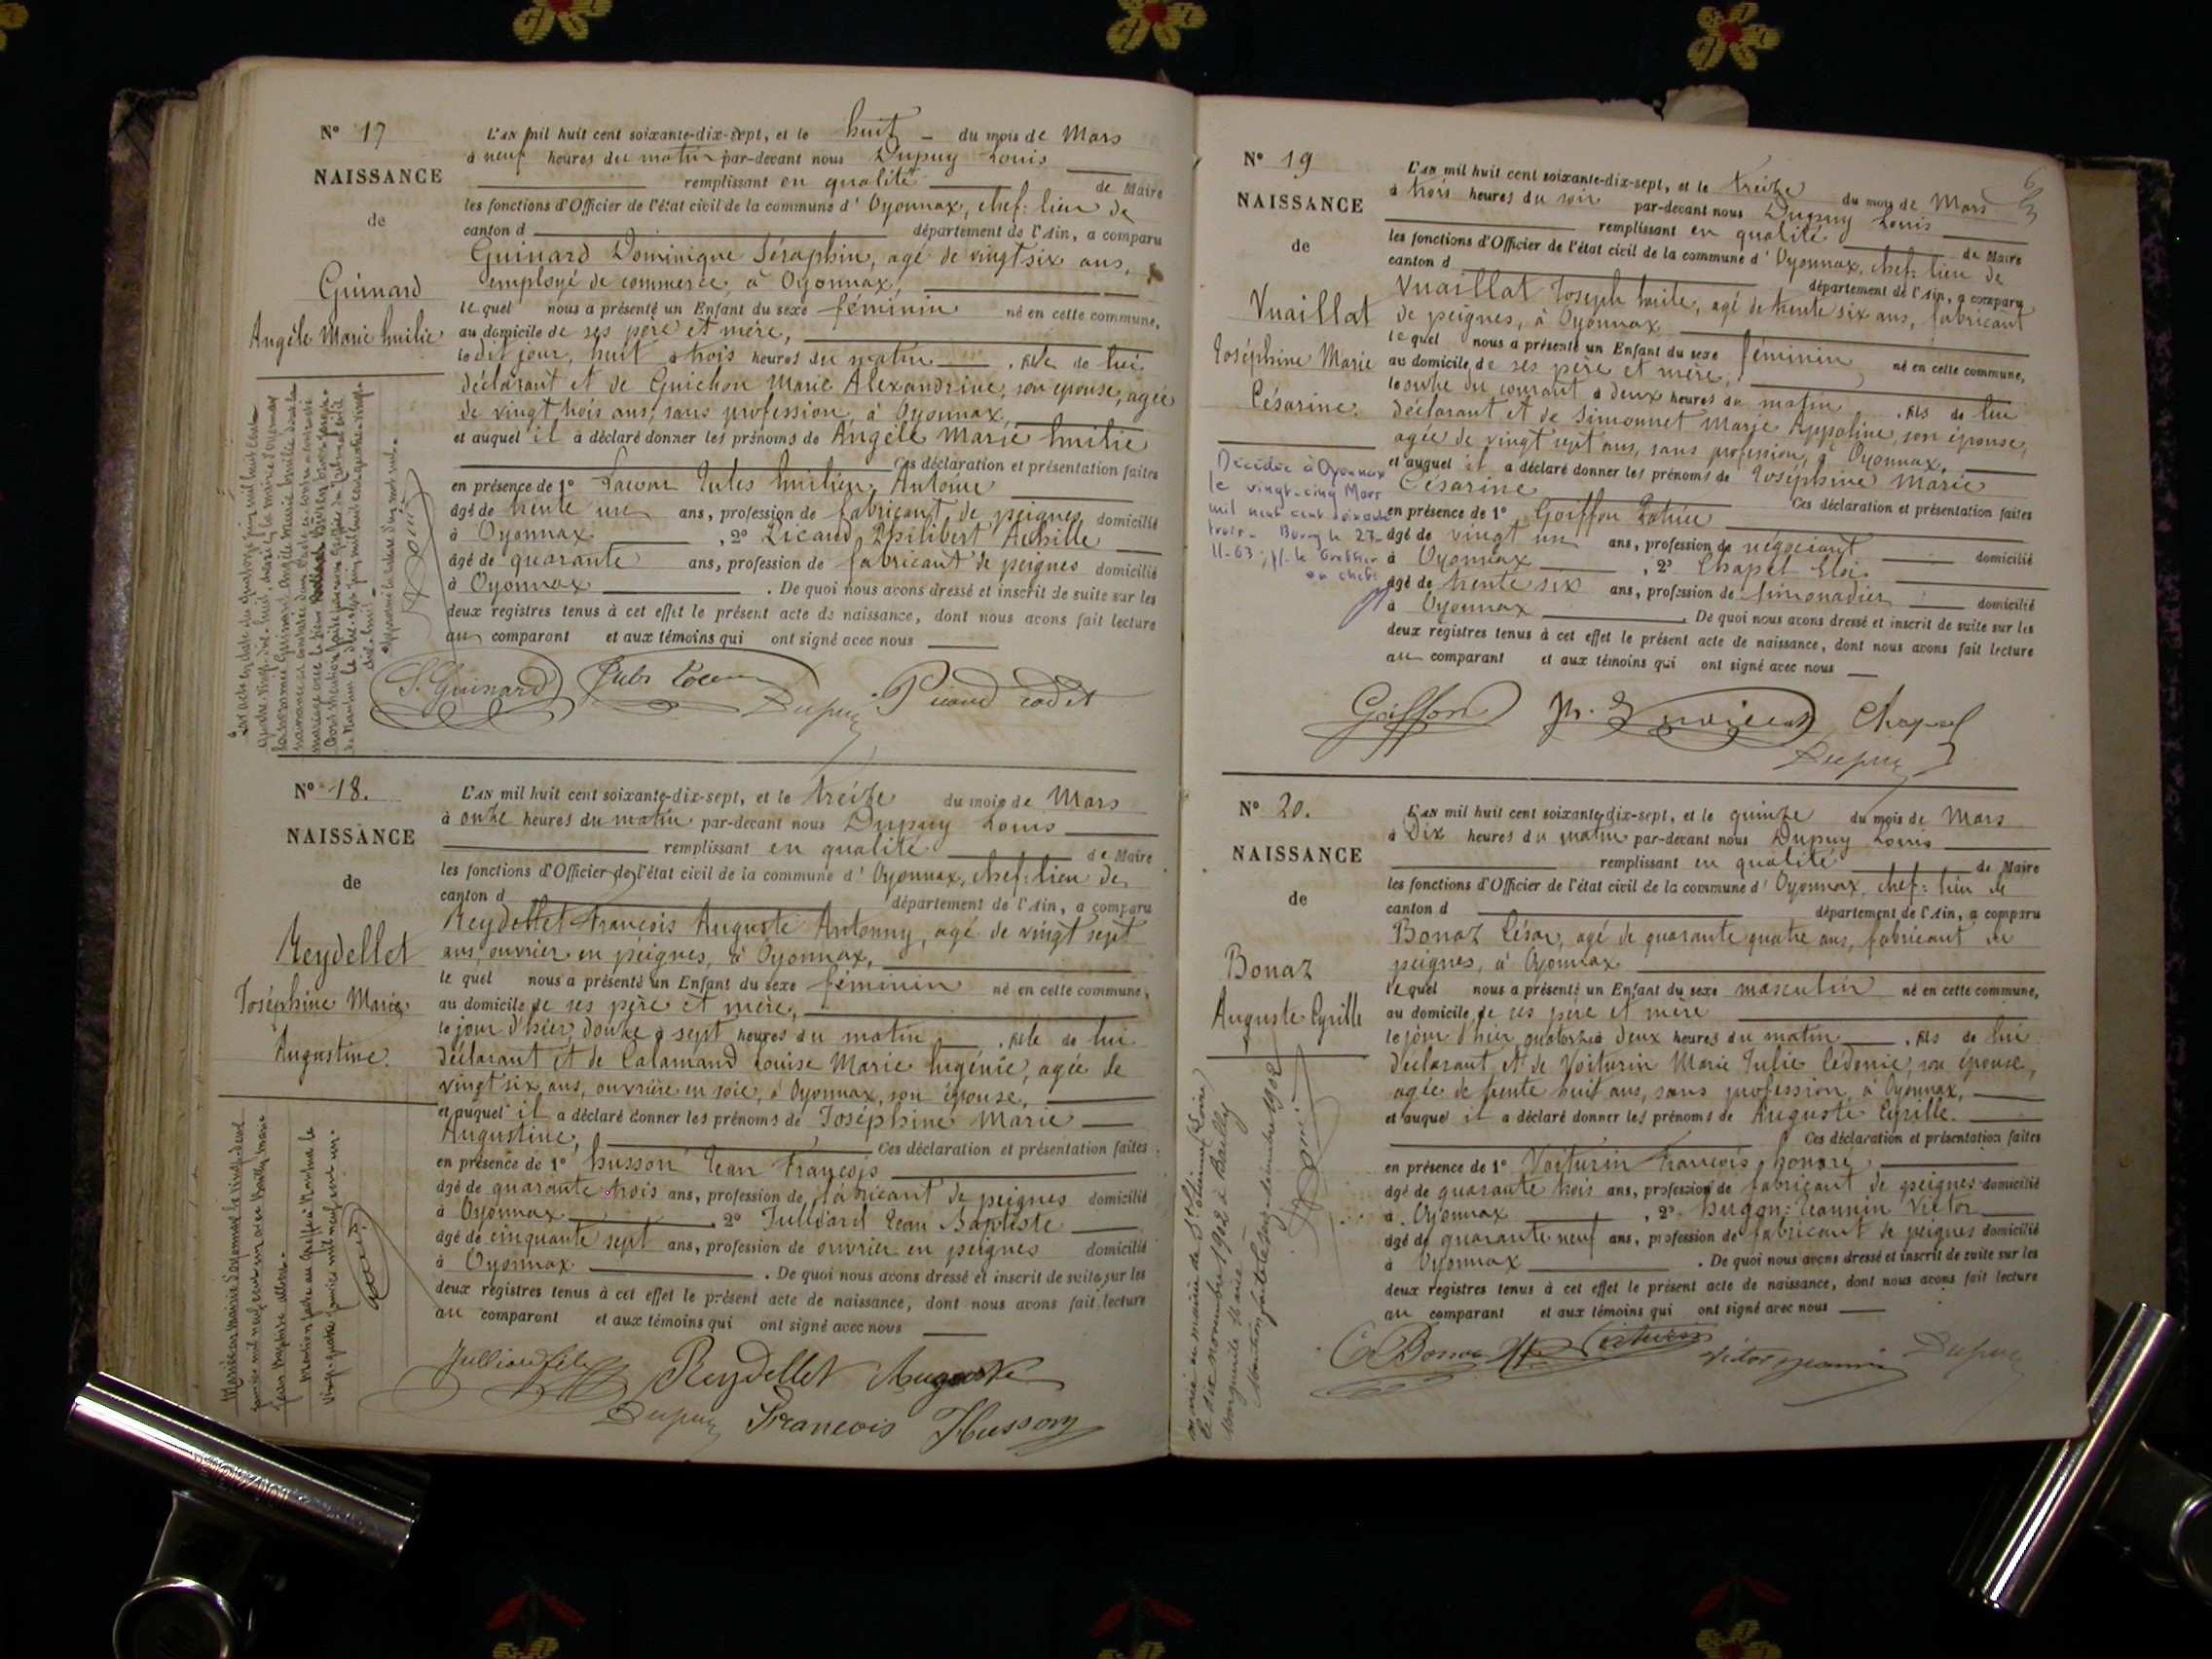 N° 17
NAISSANCE
de
Guinard
Angèle Marie Emilie
L'AN mil huit cent soixante-dix-sept, et le huit du mois de Mars
à neuf heures du matin par-devant nous Dupuy Louis
remplissant en qualité de Maire
les fonctions d'Officier de l'état civil de la commune d' Oyonnax, chef-lieu de
canton d département de l'Ain, a comparu
Guinard Dominique Séraphin, agé de vingt six ans,
employé de commerce, à Oyonnax,
le quel nous a présenté un Enfant du sexe féminin né en cette commune,
au domicile de ses père et mère,
le dit jour, huit à trois heures du matin, fille de lui
déclarant et de Guichon Marie Alexandrine, son épouse, agée
de vingt trois ans, sans profession, à Oyonnax,
et auquel il a déclaré donner les prénoms de Angèle Marie Emilie
Ces déclaration et présentation faites
en présence de 1° Jules Emilien Antoine
âgé de trente un ans, profession de fabricant de peignes domicilié
à Oyonnax, 2° Picaud Philibert Achille
âgé de quarante ans, profession de fabricant de peignes domicilié
à Oyonnax. De quoi nous avons dressé et inscrit de suite sur les
deux registres tenus à cet effet le présent acte de naissance, dont nous avons fait lecture
au comparant et aux témoins qui ont signé avec nous
S. Guinard Jules Dupuy Picaud cadet
N° 18.
NAISSANCE
de
Reydellet
Joséphine Marie
Augustine.
L'AN mil huit cent soixante-dix-sept, et le treize du mois de Mars
à onze heures du matin par-devant nous Dupuy Louis
remplissant en qualité de Maire
les fonctions d'Officier de l'état civil de la commune d' Oyonnax, chef-lieu de
canton d département de l'Ain, a comparu
Reydellet François Auguste Antonny, agé de vingt sept
ans, ouvrier en peignes, à Oyonnax,
le quel nous a présenté un Enfant du sexe féminin né en cette commune,
au domicile de ses père et mère,
le jour d'hier, douze à sept heures du matin, fille de lui
déclarant et de Calamand Louise Marie Eugénie, agée de
vingt six ans, ouvrière en soie, à Oyonnax, son épouse,
et auquel il a déclaré donner les prénoms de Joséphine Marie
Augustine, Ces déclaration et présentation faites
en présence de 1° husson Jean François
âgé de quarante trois ans, profession de fabricant de peignes domicilié
à Oyonnax 2° Julliard Jean Baptiste
âgé de cinquante sept ans, profession de ouvrier en peignes domicilié
à Oyonnax. De quoi nous avons dressé et inscrit de suite sur les
deux registres tenus à cet effet le présent acte de naissance, dont nous avons fait lecture
au comparant et aux témoins qui ont signé avec nous
Reydellet Auguste
Dupuy François Husson
N° 19
NAISSANCE
de
Vuaillat
Joséphine Marie
Césarine.
Décédée à Oyonnax
le vingt-cinq Mars
mil neuf cent soixante
trois - Bourg le 27-
11-63 ; le Greffier
en chef
L'AN mil huit cent soixante-dix-sept, et le treize du mois de Mars
à trois heures du soir par-devant nous Dupuy Louis
remplissant en qualité de Maire
les fonctions d'Officier de l'état civil de la commune d' Oyonnax, chef-lieu de
canton d département de l'Ain, a comparu
Vuaillat Joseph Emile, agé de trente six ans, fabricant
de peignes, à Oyonnax
le quel nous a présenté un Enfant du sexe féminin né en cette commune,
au domicile de ses père et mère,
le onze du courant à deux heures du matin, fils de lui
déclarant et de Simonnet Marie Appoline, son épouse,
agée de vingt sept ans, sans profession, à Oyonnax,
et auquel il a déclaré donner les prénoms de Joséphine Marie
Césarine Ces déclaration et présentation faites
en présence de 1° Goiffon
âgé de vingt un ans, profession de négociant domicilié
à Oyonnax, 2° Chapel Eloi
âgé de trente six ans, profession de limonadier domicilié
à Oyonnax. De quoi nous avons dressé et inscrit de suite sur les
deux registres tenus à cet effet le présent acte de naissance, dont nous avons fait lecture
au comparant et aux témoins qui ont signé avec nous
Goiffon Chapel
Dupuy
N° 20.
NAISSANCE
de
Bonaz
Auguste Cyrille
L'AN mil huit cent soixante-dix-sept, et le quinze du mois de Mars
à Dix heures du matin par-devant nous Dupuy Louis
remplissant en qualité de Maire
les fonctions d'Officier de l'état civil de la commune d' Oyonnax, chef-lieu de
canton d département de l'Ain, a comparu
Bonaz César, agé de quarante quatre ans, fabricant de
peignes, à Oyonnax
le quel nous a présenté un Enfant du sexe masculin né en cette commune,
au domicile de ses père et mère
le jour d'hier quatorze à deux heures du matin, fils de lui
déclarant, et de Voiturin Marie Julie Lédonie, son épouse,
agée de trente huit ans, sans profession, à Oyonnax,
et auquel il a déclaré donner les prénoms de Auguste Cyrille.
Ces déclaration et présentation faites
en présence de 1° Voiturin François honoré
âgé de quarante trois ans, profession de fabricant de peignes domicilié
à Oyonnax, 2° hugon-Jeannin Victor
âgé de quarante neuf ans, profession de fabricant de peignes domicilié
à Oyonnax. De quoi nous avons dressé et inscrit de suite sur les
deux registres tenus à cet effet le présent acte de naissance, dont nous avons fait lecture
au comparant et aux témoins qui ont signé avec nous
C. Bonaz Voiturin Victor Jeannin Dupuy